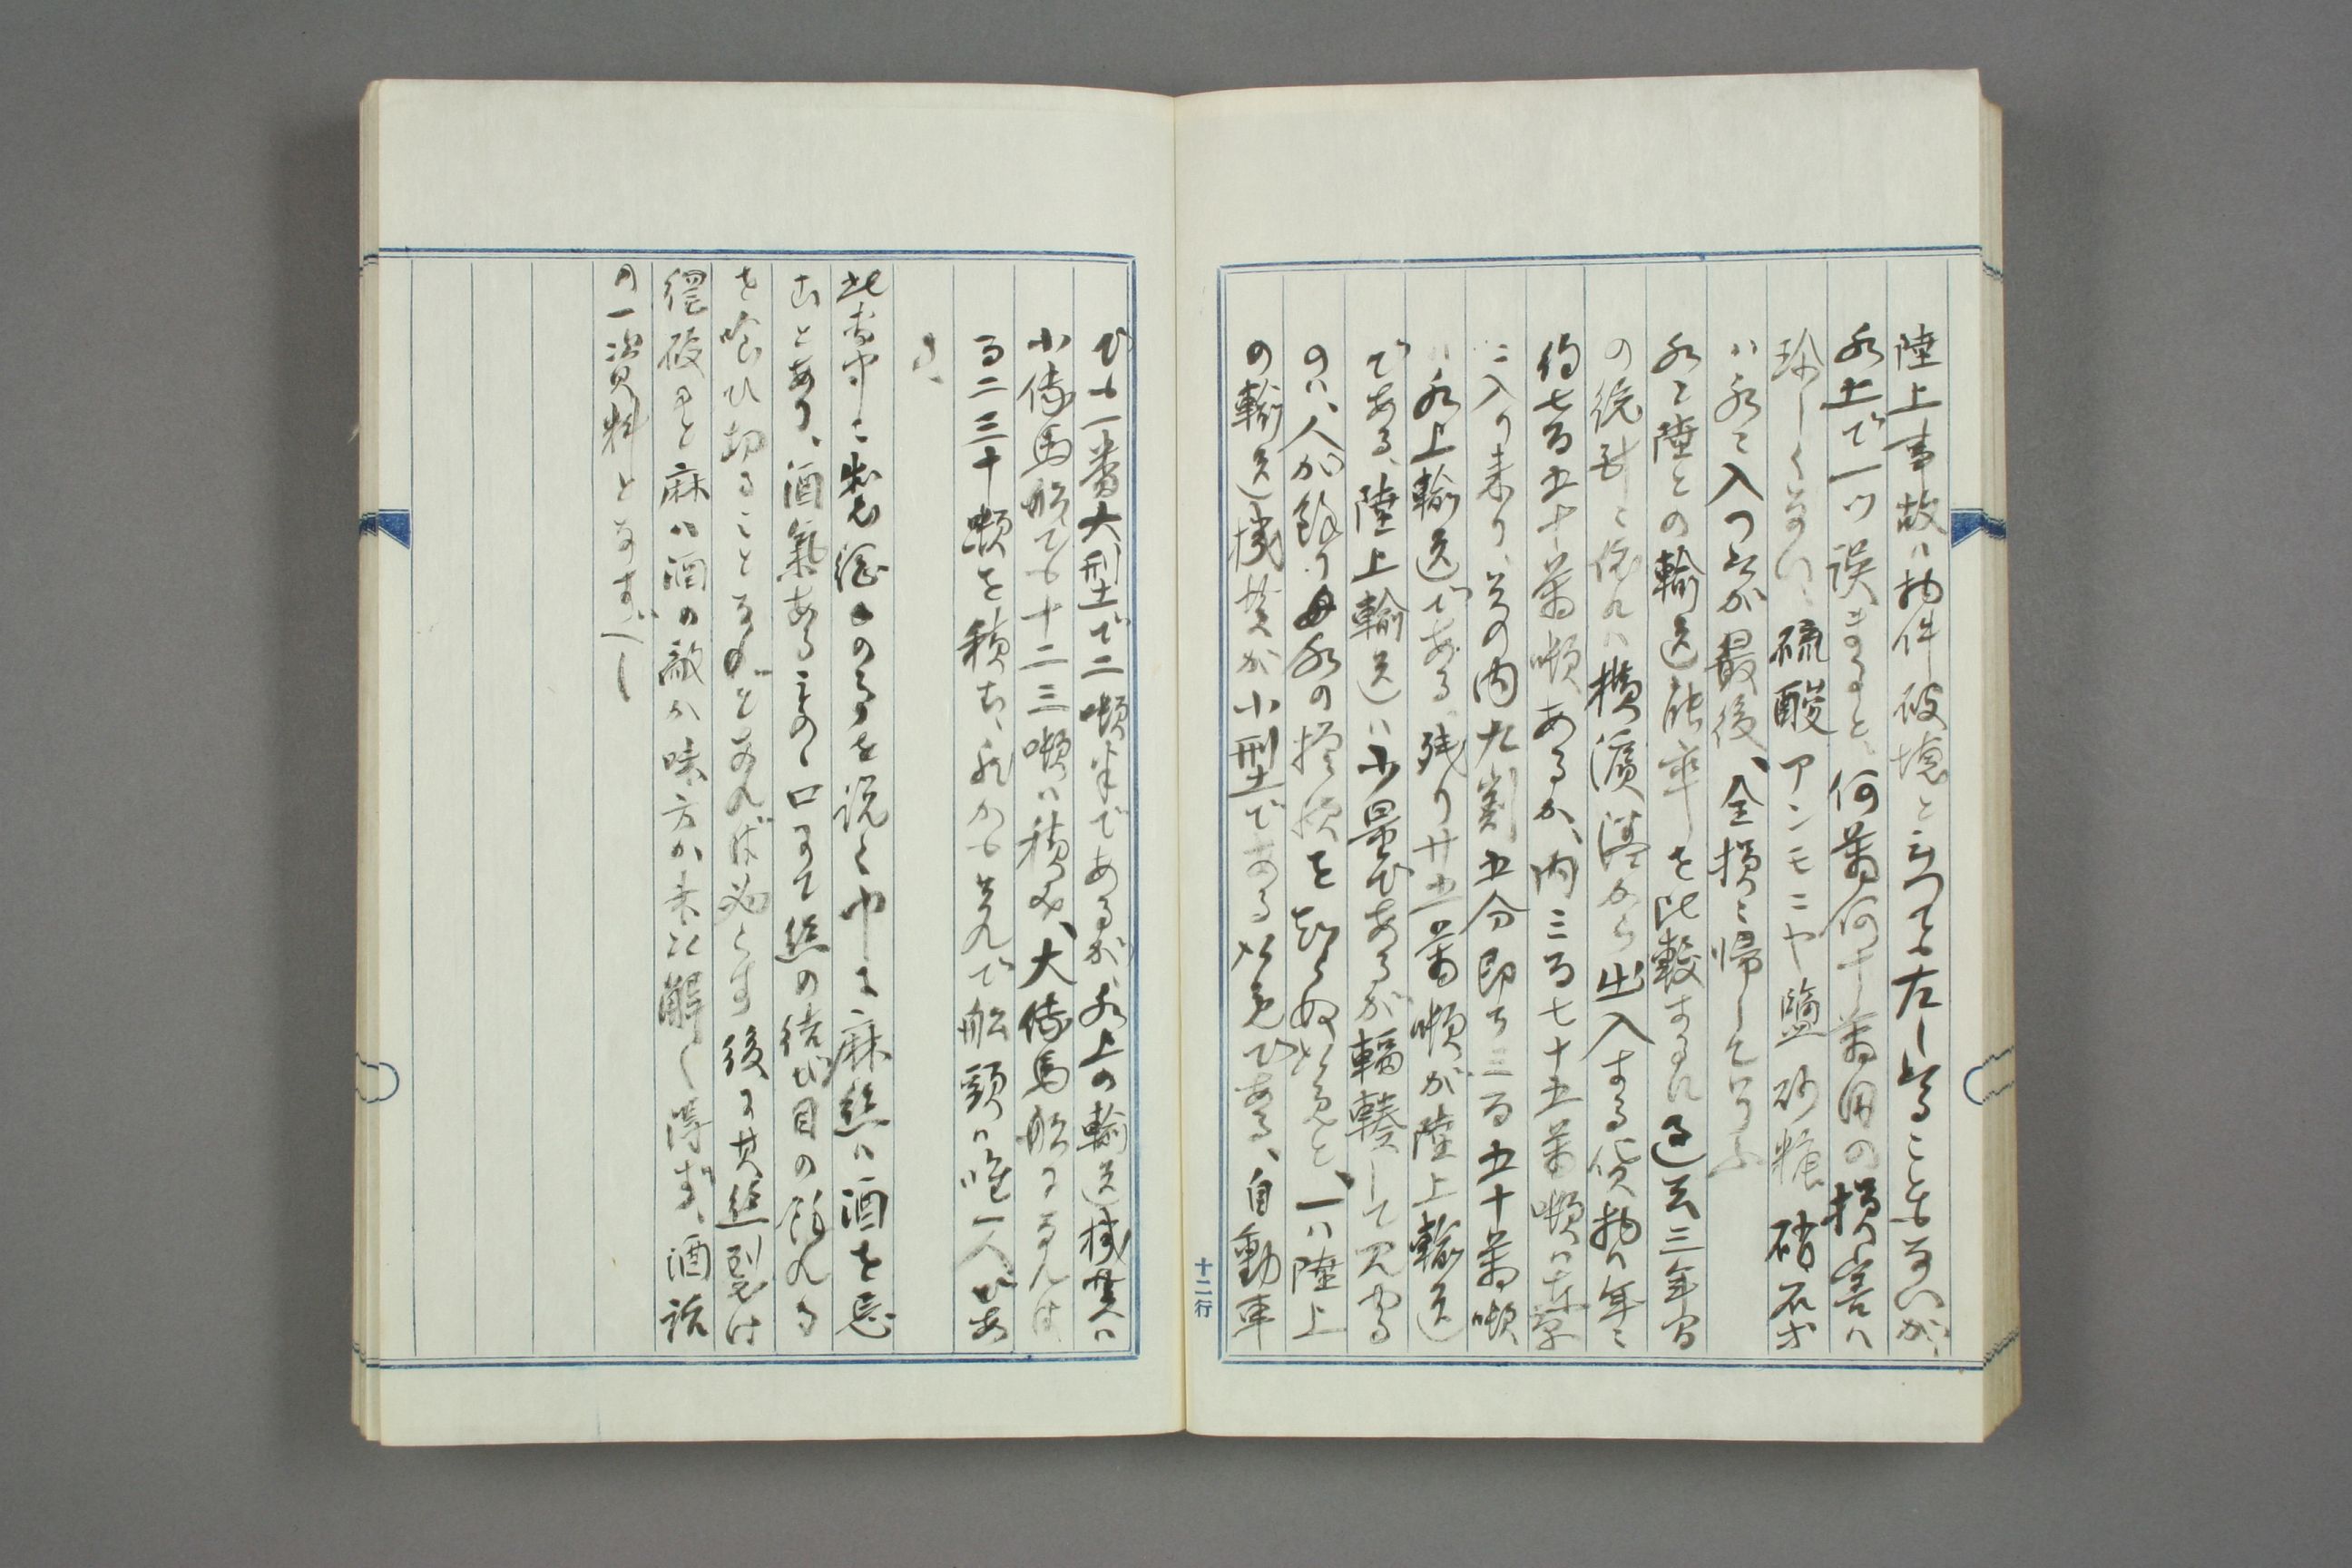 陸上事故ハ物件破壊と云つても大したることもないが、
水上で一ツ誤まると、何萬何十萬円の損害ハ
珍しくない、硫酸アンモニヤ塩砂糖硝石等
ハ水ニ入つたが最後、全損ニ帰して了ふ
水ニ陸との輸送能率を比較するに過去三年間
の統計ニ依れハ横濱港から出入する貨物ハ年ニ
約七百五十萬噸あるが、内三百七十五萬噸ハ東京
ニ入り来り、其の内九割五分即ち三百五十萬噸
ハ水上輸送である、残り廿五萬噸が陸上輸送
である、陸上輸送ハ少量であるが輻輳して見ゆる
のハ、人が餘り水の揺を知らぬ故と、一ハ陸上
の輸送機関が小型でなる以である、自動車
でも一番大型で二噸半であるが、水上の輸送機関ハ
小傳馬船でも十二三噸ハ積め、大傳馬船になれば
百二三十噸を積む、然かも其れで船頭ハ唯一人であ
る、
此書中ニ製絙のを説く中に麻絲ハ酒を忌
むとあり、酒氣あるもの口にて絲の結び目の餘れる
を喰ひ切ることなかれとなれば必らず後に其絲裂け
綻破ると麻ハ酒の敵か味方か未だ解し得ず、酒話
の一資料となすべし
十二行